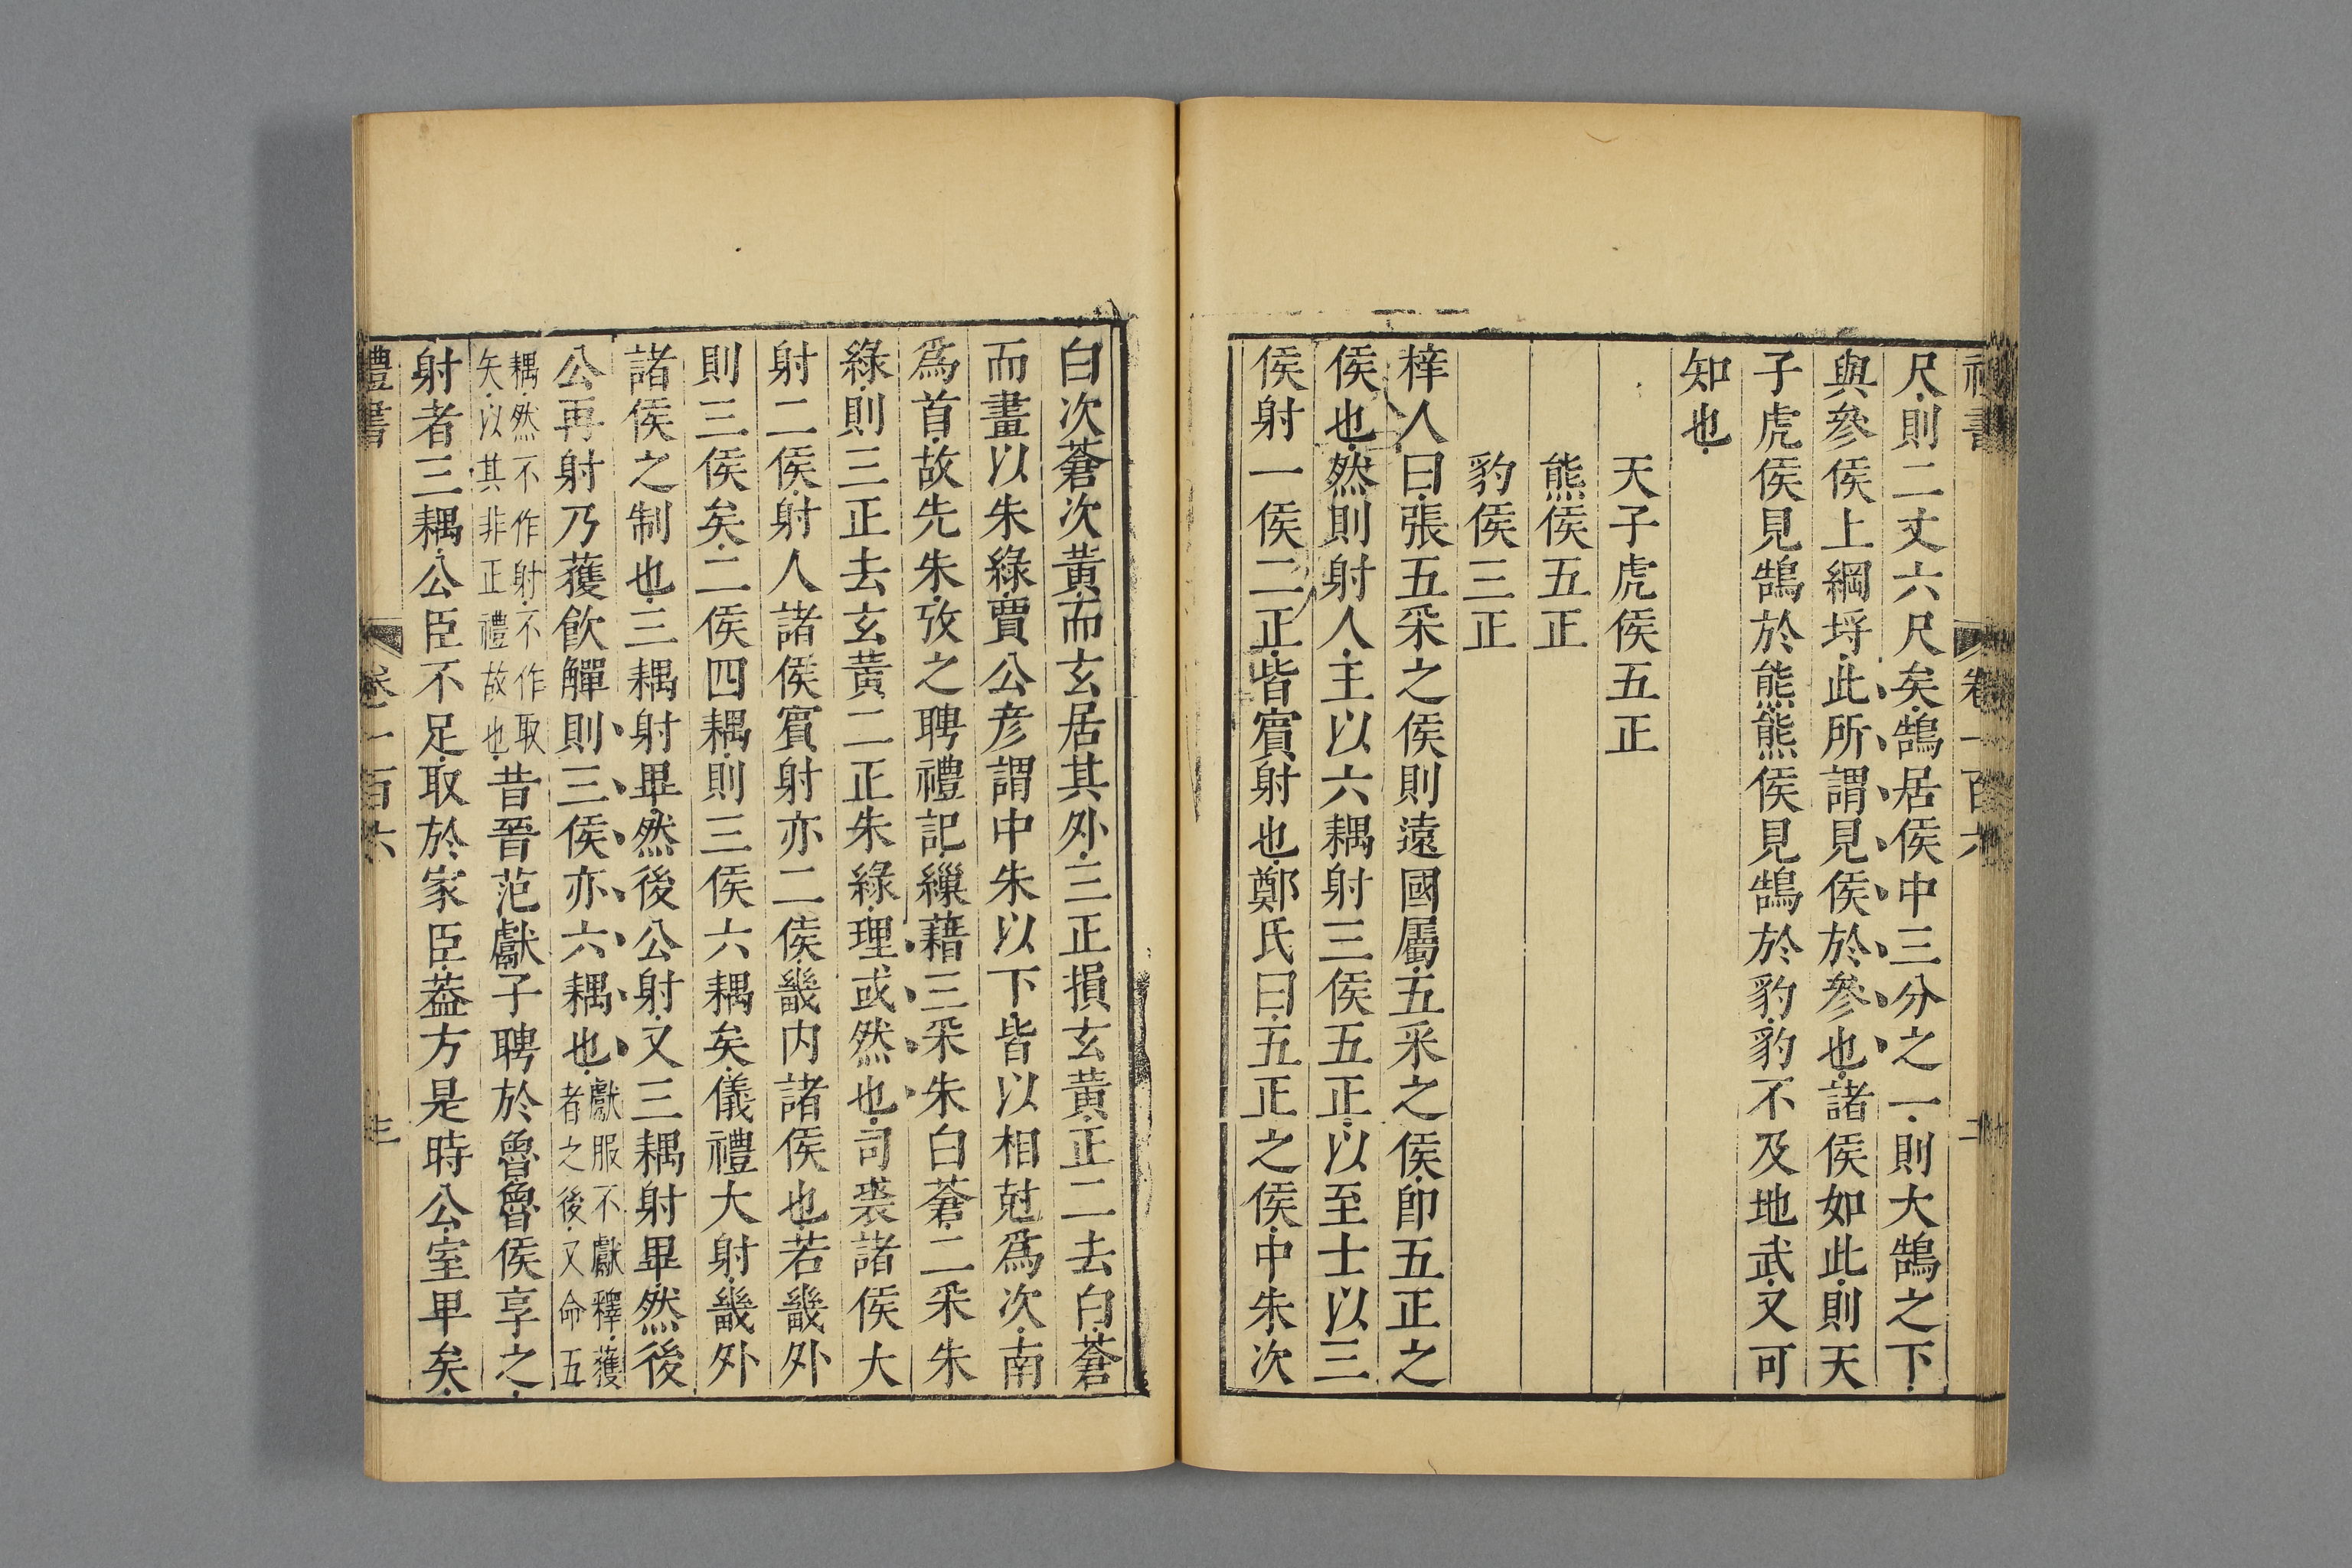 禮書 卷一百六
尺則二丈六尺矣鵠居侯中三分之一則大鵠之下
與參侯上綱埒此所謂見侯於參也諸侯如此則天
子虎侯見鵠於熊熊侯見鵠於豹豹不及地武又可
知也
天子虎侯五正
熊侯五正
豹侯三正
梓人曰張五采之侯則遠國屬五采之侯卽五正之
侯也然則射人主以六耦射三侯五正以至士以三
侯射一侯二正皆賓射也鄭氏曰五正之侯中朱次
白次蒼次黃而玄居其外三正損玄黃正二去白蒼
而畫以朱綠賈公彥謂中朱以下皆以相尅爲次南
爲首故先朱攷之聘禮記繅藉三采朱白蒼二采朱
綠則三正去玄黃二正朱綠理或然也司裘諸侯大
射二侯射人諸侯賓射亦二侯畿内諸侯也若畿外
則三侯矣二侯四耦則三侯六耦矣儀禮大射畿外
諸侯之制也三耦射畢然後公射又三耦射畢然後
公再射乃蒦飮觶則三侯亦六耦也獻服不獻釋獲
者之後又命五
耦然不作射不作取
矢以其非正禮故也昔晉范獻子聘於魯魯侯享之
射者三耦公臣不足取於家臣葢方是時公室卑矣
禮書 卷一百六